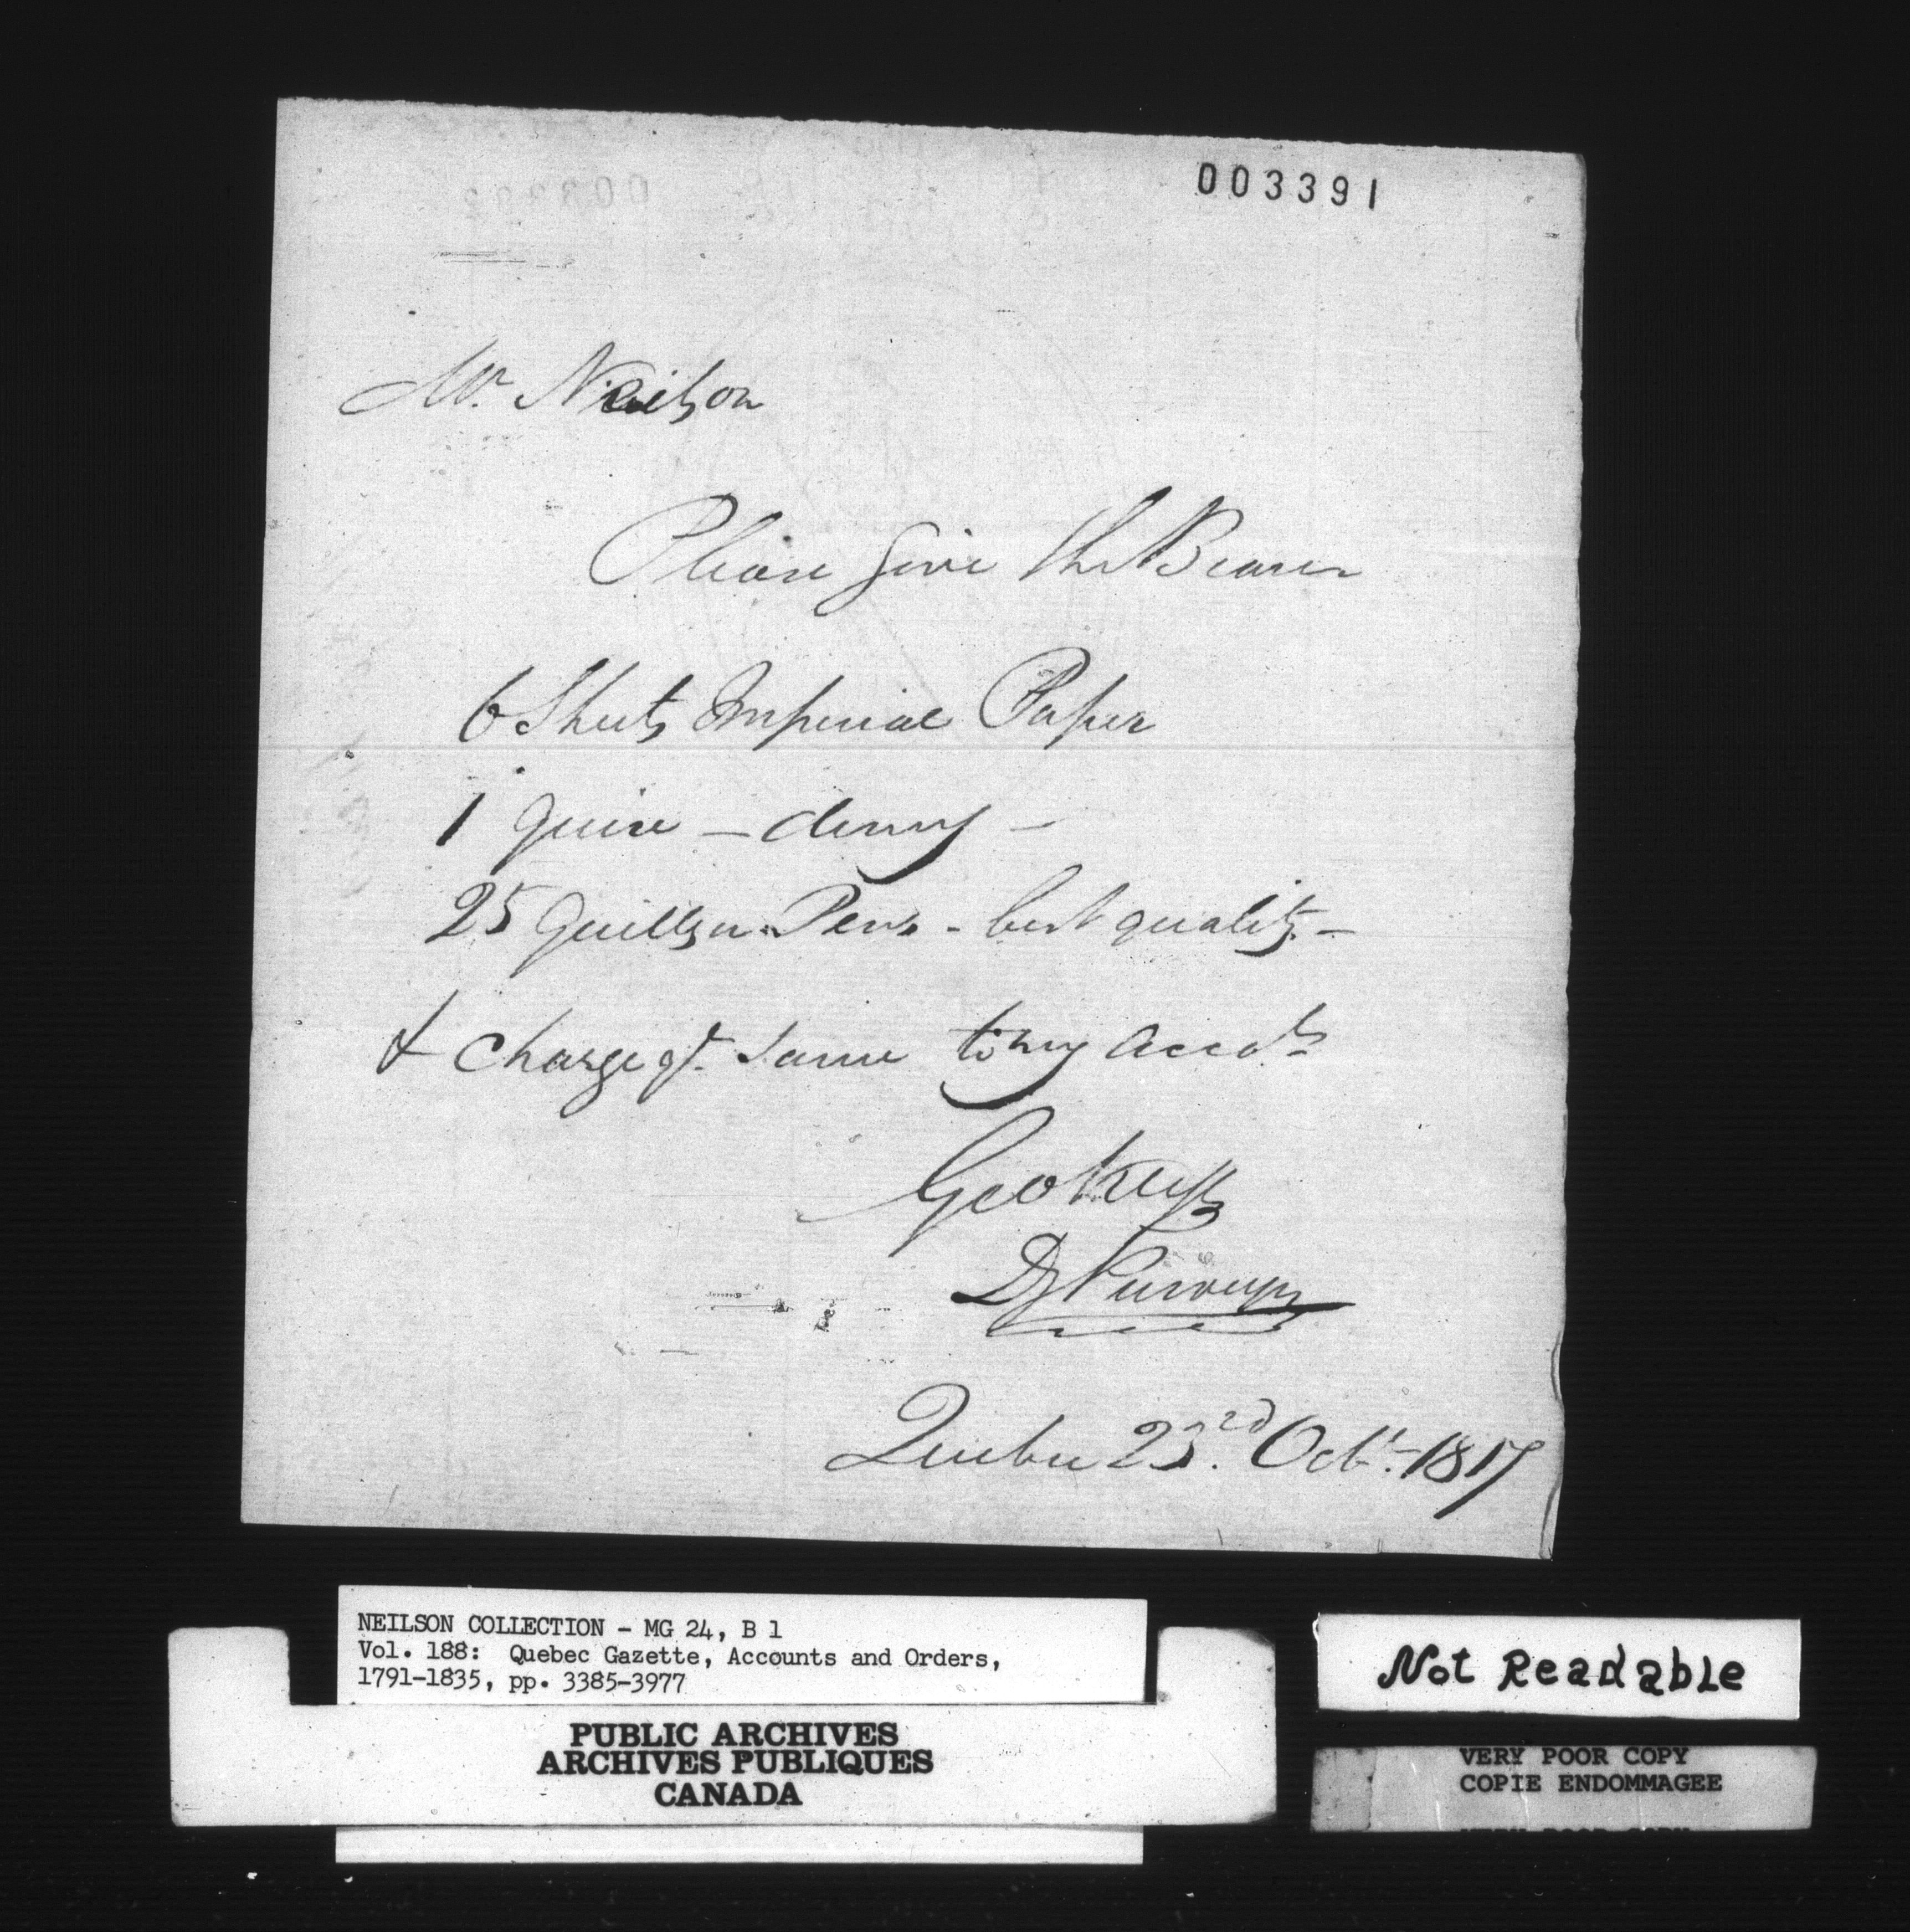 003391
Mr. Neilson
Please Give the Bearer
6 Sheets Imperial Paper
1 Quire — demy —
25 Quills or Pens - best quality —
& Charge ye. Same to my Accots
Geo Keys
Dy Surveyor
Quebec 23rd. Octr. 1817
NEILSON COLLECTION - MG 24, B 1
Vol. 188: Quebec Gazette, Accounts and Orders,
1791-1835, pp. 3385-3977
PUBLIC ARCHIVES
ARCHIVES PUBLIQUES
CANADA
Not Readable
VERY POOR COPY
COPIE ENDOMMAGEE
VERY POOR COPY